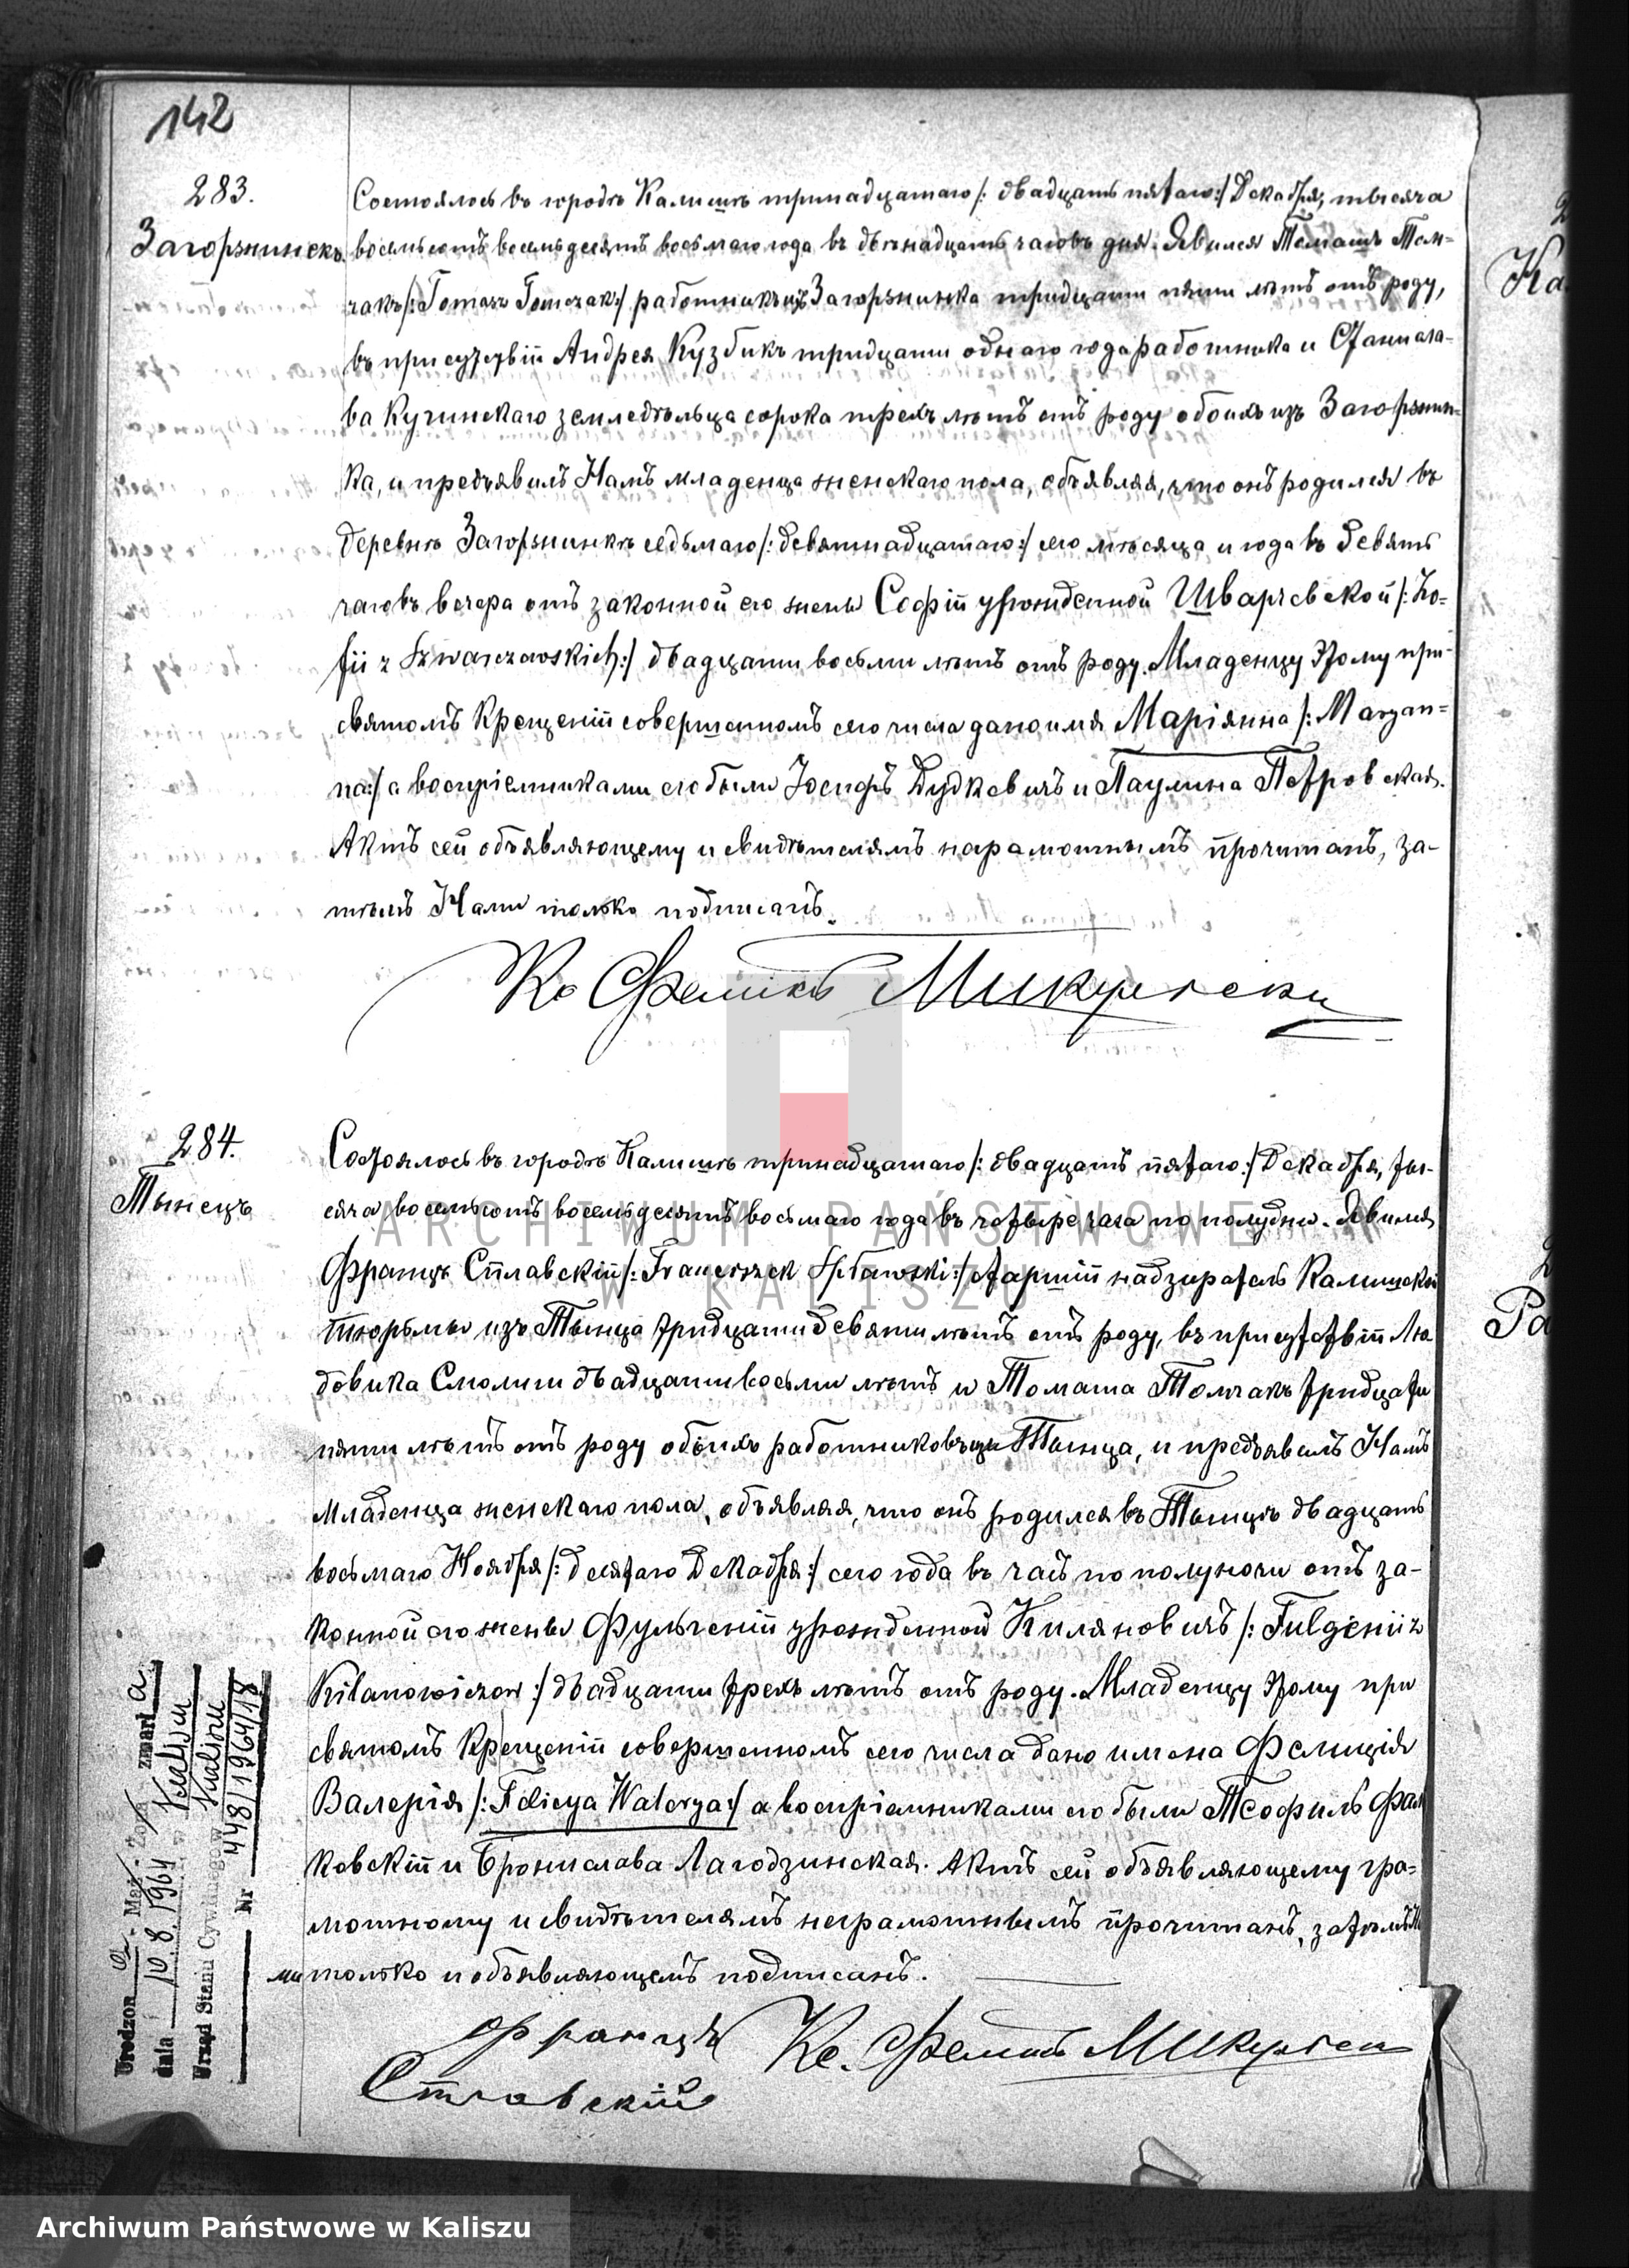 142
283.
Загоржинекъ
Состоялось въ городѣ Калишѣ тринадцатаго /: двадцать пятаго :/ Декабря, тысяча
восемьсотъ восемьдесятъ восьмаго года въ двѣнадцать часовъ дня. Явился Томашъ Том-
чакъ /: Tomasz Tomczak :/ работникъ изъ Загоржинка тридцати пяти лѣтъ отъ роду,
въ присутствіи Андрея Кузбикъ тридцати однаго года работника и Станисла-
ва Кучинскаго земледѣльца сорока трехъ лѣтъ отъ роду обоихъ изъ Загоржин-
ка, и предъявилъ Намъ младенца женскаго пола, объявляя, что онъ родился въ
деревнѣ Загоржинкѣ седьмаго /: девятнадцатаго :/ сего мѣсяца и года въ девять
часовъ вечера отъ законной его жены Софіи урожденной Шварчевской /: Zo-
fii z Szwarczewskich :/ двадцати восьми лѣтъ отъ роду. Младенцу этому при
святомъ Крещеніи совершенномъ сего числа дано имя Маріянна /: Maryan-
na :/ а воспріемниками его были Іосифъ Дудкевичъ и Паулина Петровская.
Актъ сей объявляющему и свидѣтелямъ неграмотнымъ прочитанъ, за-
тѣмъ Нами только подписанъ.
Кс Феликсъ Микульски
284.
Тынецъ
Состоялось въ городѣ Калишѣ тринадцатаго /: двадцать пятаго :/ Декабря, ты-
сяча восемьсотъ восемьдесятъ восьмаго года въ четыре часа по полудни. Явился
Францъ Сплавскій /: Franciszek Spławski :/ старшій надзиратель Калишской
тюрьмы изъ Тынца тридцати девяти лѣтъ отъ роду, въ присутствіи Лю
довика Смолиги двадцати восьми лѣтъ и Томаша Томчакъ тридцати
пяти лѣтъ отъ роду обоихъ работниковъ изъ Тынца, и предъявилъ Намъ
младенца женскаго пола, объявляя, что онъ родился въ Тынцѣ двадцать
восьмаго Ноября /: десятаго Декабря :/ сего года въ часъ по полуночи отъ за-
конной его жены Фульгеніи урожденной Киляновичъ /: Fulgenii z
Kilanowiczow :/ двадцати трехъ лѣтъ отъ роду. Младенцу этому при
святомъ Крещеніи совершенномъ сего числа дано имена Фелиція
Валерія /: Felicya Walerya :/ а воспріемниками его были Теофиль Фал
ковскій и Бронислава Лагодзинская. Актъ сей объявляющему гра-
мотному и свидѣтелямъ неграмотнымъ прочитанъ, затѣмъ На
ми только и объявляющемъ подписанъ.
Францъ
Сплавскій
Кс. Феликсъ Микульски
Urodzon a - zmarł a
data 10.8.1964 w Kaliszu
Urząd Stanu Cywilnego w Kaliszu
Nr 448/1964/18
ARCHIWUM PAŃSTWOWE
W KALISZU
Ка
Ра
Archiwum Państwowe w Kaliszu